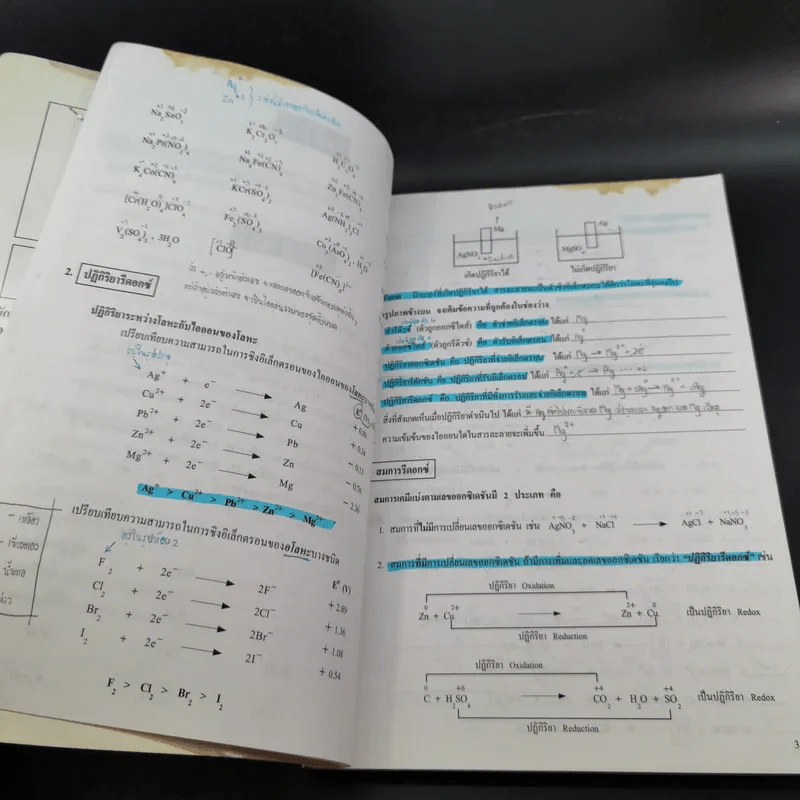 Ag⁺
Zn
Na₂SnO₃
K₂Cr₂O₇
H₂C₂O₄
Na₂Pt(NO₂)₄
Na₄Fe(CN)₆
Zn₂Fe(CN)₆
K₃Co(CN)₆
KCr(SO₄)₂
Ag(NH₃)₂Cl
[Cr(H₂O)₆]ClO₄
Fe₂(SO₄)₃
Co₃(AsO₄)₂ · H₂O
V₂(SO₄)₃ · 3H₂O
[ClO₃]⁻
[Fe(CN)₆]³⁻
2. ปฏิกิริยารีดอกซ์
ปฏิกิริยาระหว่างโลหะกับไอออนของโลหะ
เปรียบเทียบความสามารถในการชิงอิเล็กตรอนของไอออนของโลหะบางชนิด
E° (V)
Ag⁺ + e⁻ → Ag
Cu²⁺ + 2e⁻ → Cu
Pb²⁺ + 2e⁻ → Pb
Zn²⁺ + 2e⁻ → Zn − 0.76
Mg²⁺ + 2e⁻ → Mg − 2.36
Ag⁺ > Cu²⁺ > Pb²⁺ > Zn²⁺ > Mg²⁺
เปรียบเทียบความสามารถในการชิงอิเล็กตรอนของอโลหะบางชนิด
E° (V)
F₂ + 2e⁻ → 2F⁻ + 2.89
Cl₂ + 2e⁻ → 2Cl⁻ + 1.36
Br₂ + 2e⁻ → 2Br⁻ + 1.08
I₂ + 2e⁻ → 2I⁻ + 0.54
F₂ > Cl₂ > Br₂ > I₂
Mg
Ag
AgNO₃
MgSO₄
เกิดปฏิกิริยาได้
ไม่เกิดปฏิกิริยา
รูปภาพข้างบน จงเติมข้อความที่ถูกต้องในช่องว่าง
ตัวรีดิวซ์ (ตัวถูกออกซิไดส์) คือ ตัวจ่ายอิเล็กตรอน ได้แก่ Mg
ตัวออกซิไดส์ (ตัวถูกรีดิวซ์) คือ ตัวรับอิเล็กตรอน ได้แก่ Ag⁺
ปฏิกิริยาออกซิเดชัน คือ ปฏิกิริยาที่จ่ายอิเล็กตรอน ได้แก่ Mg → Mg²⁺
ปฏิกิริยารีดักชัน คือ ปฏิกิริยาที่รับอิเล็กตรอน ได้แก่
ปฏิกิริยารีดอกซ์ คือ ปฏิกิริยาที่มีทั้งการรับและจ่ายอิเล็กตรอน ได้แก่
สิ่งที่สังเกตเห็นเมื่อปฏิกิริยาดำเนินไป ได้แก่
ความเข้มข้นของไอออนใดในสารละลายจะเพิ่มขึ้น Mg²⁺
สมการรีดอกซ์
สมการเคมีแบ่งตามเลขออกซิเดชันมี 2 ประเภท คือ
1. สมการที่ไม่มีการเปลี่ยนเลขออกซิเดชัน เช่น AgNO₃ + NaCl → AgCl + NaNO₃
2. สมการที่มีการเปลี่ยนเลขออกซิเดชัน ถ้ามีการเพิ่มและลดเลขออกซิเดชัน เรียกว่า "ปฏิกิริยารีดอกซ์" เช่น
ปฏิกิริยา Oxidation
0 2+ 2+ 0
Zn + Cu → Zn + Cu เป็นปฏิกิริยา Redox
ปฏิกิริยา Reduction
ปฏิกิริยา Oxidation
0 +6 +4 +4
C + H₂SO₄ → CO₂ + H₂O + SO₂ เป็นปฏิกิริยา Redox
ปฏิกิริยา Reduction
3